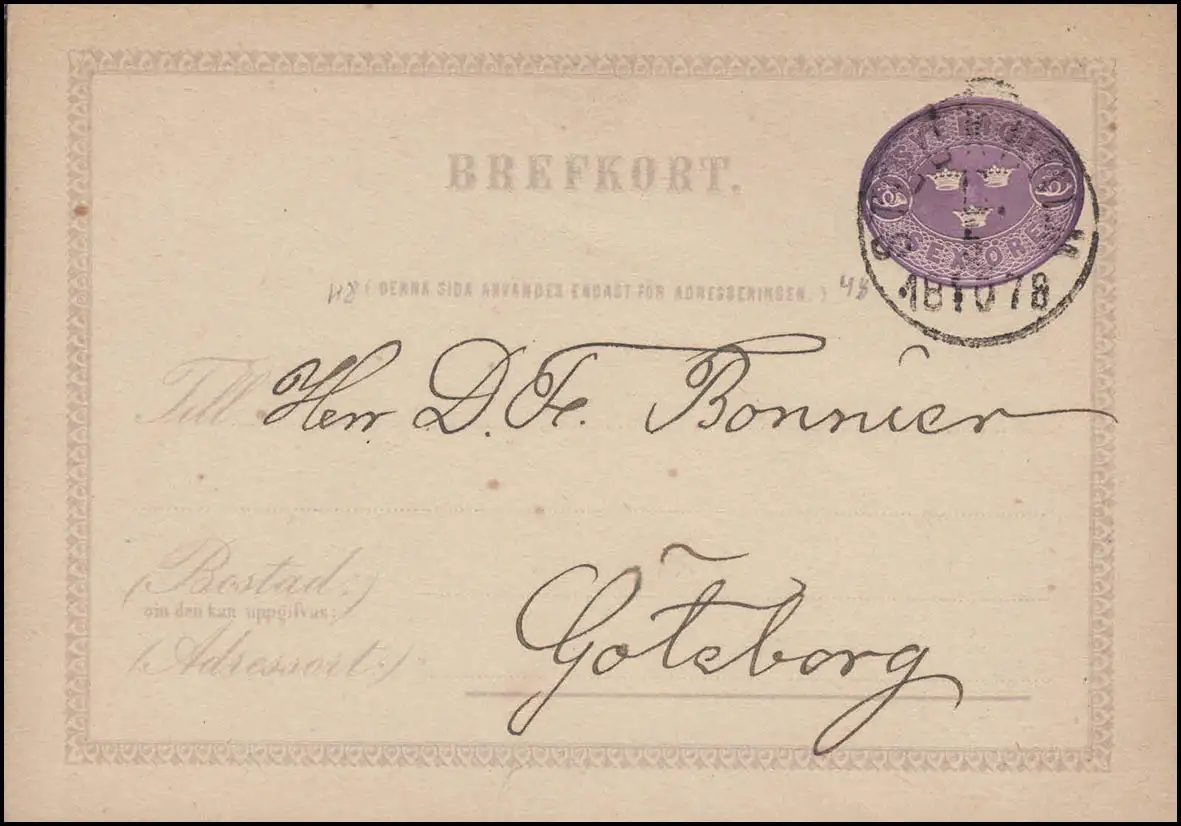 BREFKORT.
SVERIGE
SEX ÖRE
18 10 78
48 (DENNA SIDA ANVÄNDES ENDAST FÖR ADRESSERINGEN.) 48
Till Herr D. Fr. Bonnier
(Bostad:)
om den kan uppgifvas:
(Adressort:) Göteborg